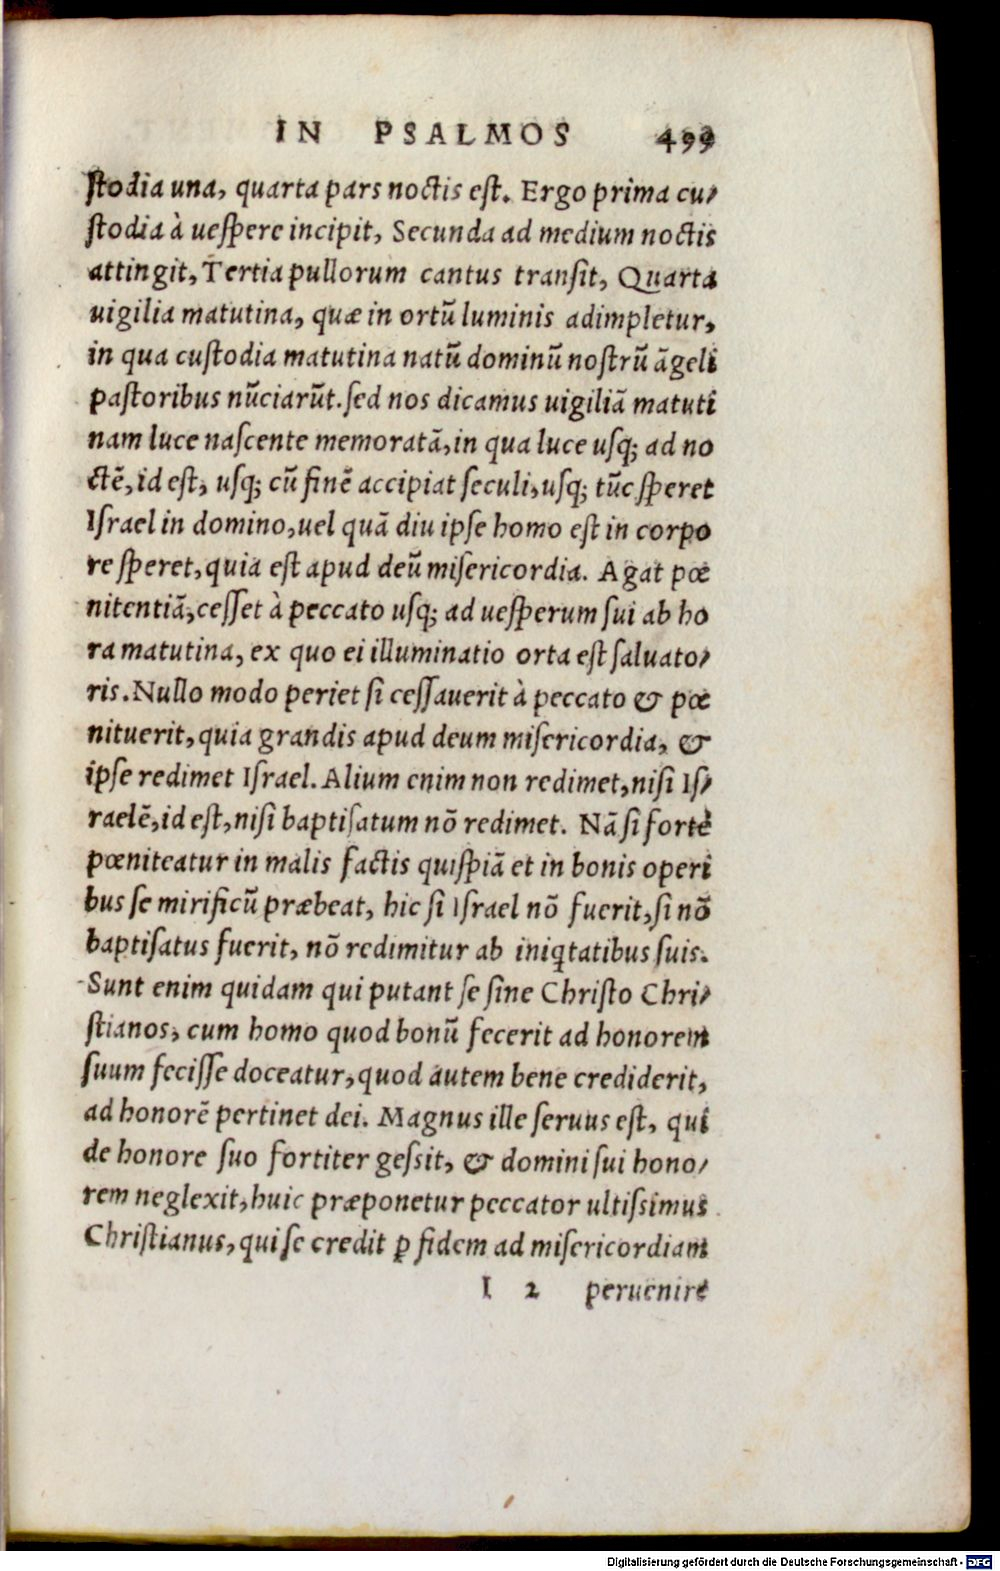 IN PSALMOS 499
ſtodia una, quarta pars noctis eſt. Ergo prima cu/
ſtodia à ueſpere incipit, Secunda ad medium noctis
attingit, Tertia pullorum cantus tranſit, Quarta
uigilia matutina, quæ in ortū luminis adimpletur,
in qua cuſtodia matutina natū dominū noſtrū āgeli
paſtoribus nūciarūt. ſed nos dicamus uigiliā matuti
nam luce naſcente memoratā, in qua luce uſq; ad no
ctē, id eſt, uſq; cū finē accipiat ſeculi, uſq; tūc ſperet
Iſrael in domino, uel quā diu ipſe homo eſt in corpo
re ſperet, quia eſt apud deū miſericordia. Agat pœ
nitentiā, ceſſet à peccato uſq; ad ueſperum ſui ab ho
ra matutina, ex quo ei illuminatio orta eſt ſaluato/
ris. Nullo modo periet ſi ceſſauerit à peccato & pœ
nituerit, quia grandis apud deum miſericordia, &
ipſe redimet Iſrael. Alium enim non redimet, niſi Iſ/
raelē, id eſt, niſi baptiſatum nō redimet. Nā ſi fortè
pœniteatur in malis factis quiſpiā et in bonis operi
bus ſe mirificū præbeat, hic ſi Iſrael nō fuerit, ſi nō
baptiſatus fuerit, nō redimitur ab iniq̃tatibus ſuis.
Sunt enim quidam qui putant ſe ſine Chriſto Chri/
ſtianos, cum homo quod bonū fecerit ad honorem
ſuum feciſſe doceatur, quod autem bene crediderit,
ad honorē pertinet dei. Magnus ille ſeruus eſt, qui
de honore ſuo fortiter geſsit, & domini ſui hono/
rem neglexit, huic præponetur peccator ultiſsimus
Chriſtianus, qui ſe credit ꝑ fidem ad miſericordiam
I 2 peruenire
Digitalisierung gefördert durch die Deutsche Forschungsgemeinschaft - DFG